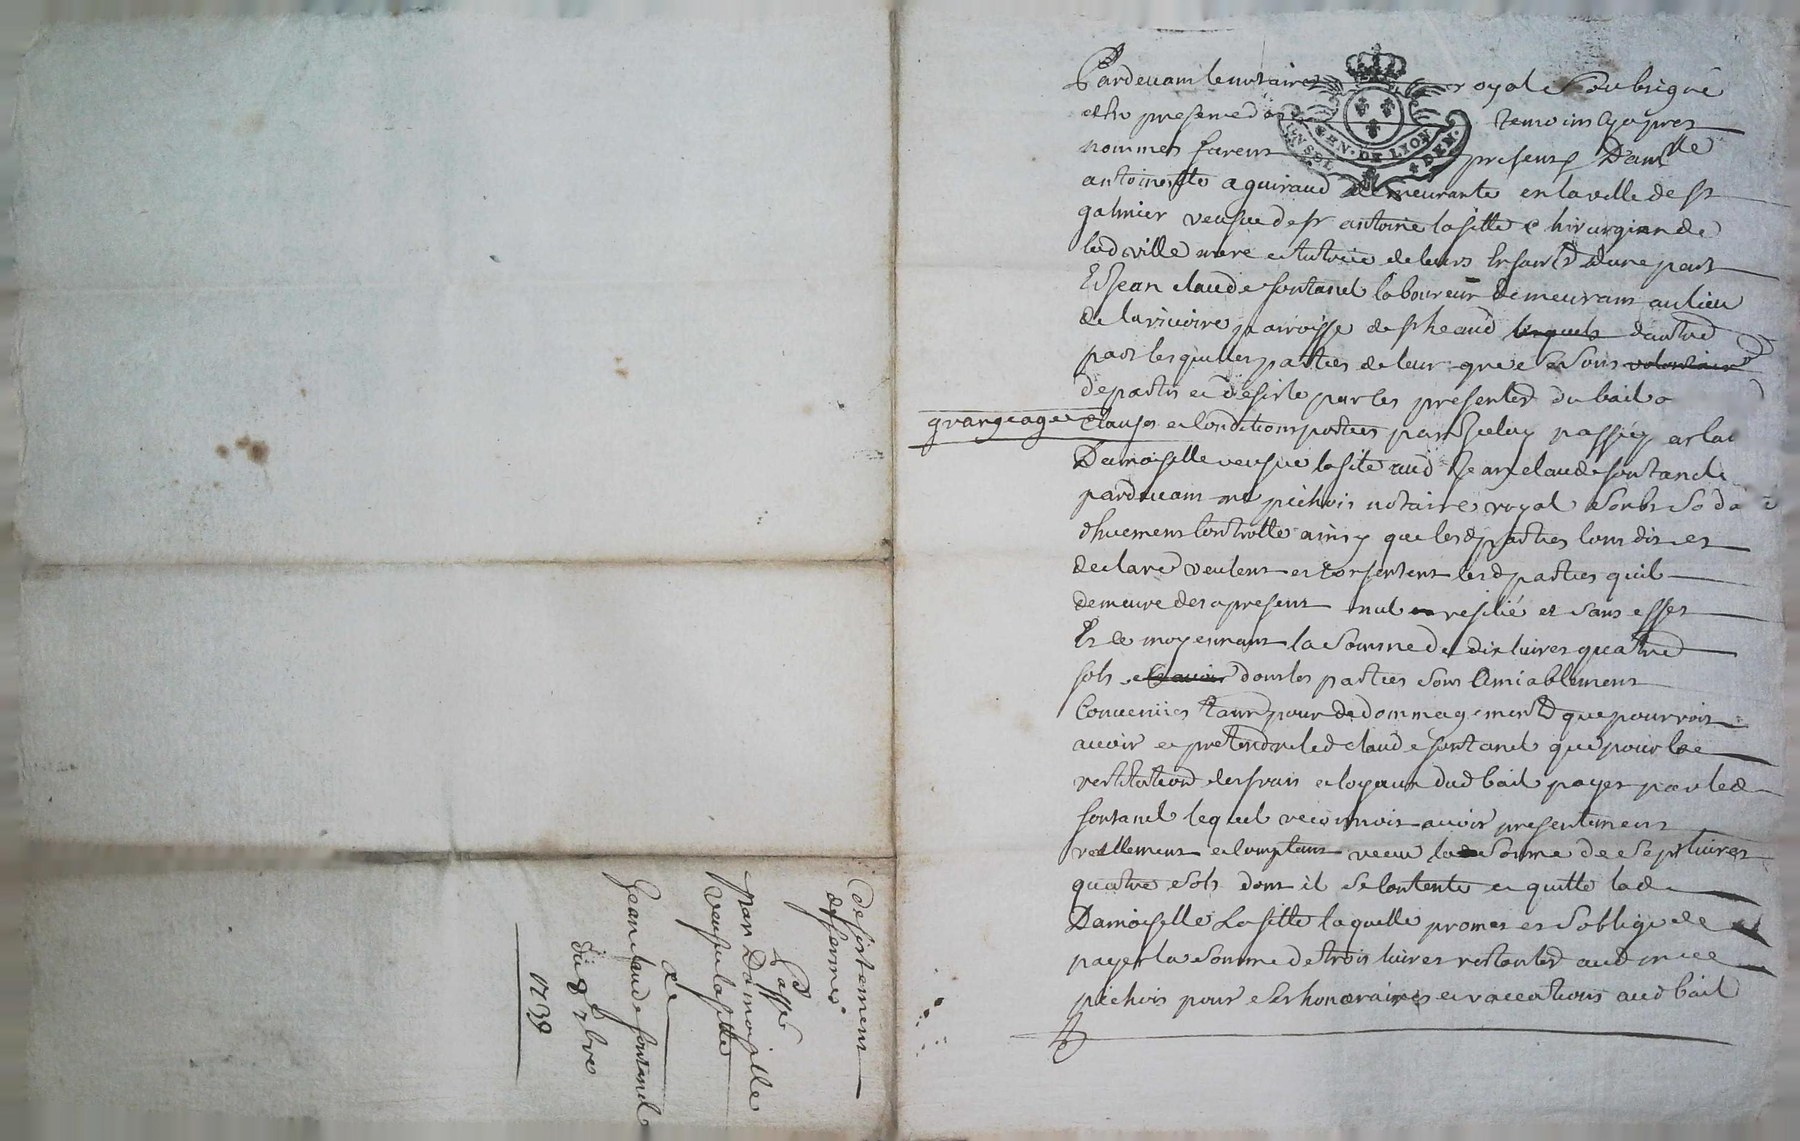 Pardevant le notaire royal Soubsigné
et en presence des temoins cy apres
nommes furent presents Dam.lle
antoinette aguiraud demeurante en la ville de st
galmier veufve de sr antoine lafitte chirurgien de
lad ville mere et tutrice de leurs enfants dune part
Et Jean claude fontanel laboureur demeurant au lieu
de la riuoire parroisse de st heand lesquels dautre
part lesquelles parties de leur gré se sont volontair
departis et desiste par les presentes du bail a
grangeage clauses et conditions portees par iceluy passée par lad
Damoiselle veufve lafite aud Jean claude fontanel
pardevant me pichois notaire royal soubs sa da
dhuement controllé ainsy que lesd parties lont dit et
declaré veulent et consentent lesd parties quil
demeure des apresent nul resilié et sans effet
Et ce moyennant la somme de dix livres quatre
sols dont les parties sont amiablement
convenües tant pour dedommagement que pourroit
avoir et pretendre led claude fontanel que pour la
restitution des frais et loyaux dud bail payes par led
fontanel lequel reconnoit avoir presentement
reellement et comptant receu la somme de sept livres
quatre sols dont il se contente et quitte lad
Damoiselle Lafitte laquelle promet et soblige de
payer la somme de trois livres restantes aud me
pichois pour ses honoraires et vaccations aud bail
desistement
de fermes
Passé
par Damoiselle
veufve lafitte
a
Jean claude fontanel
du 8 bre
1739
GEN. DE LYON